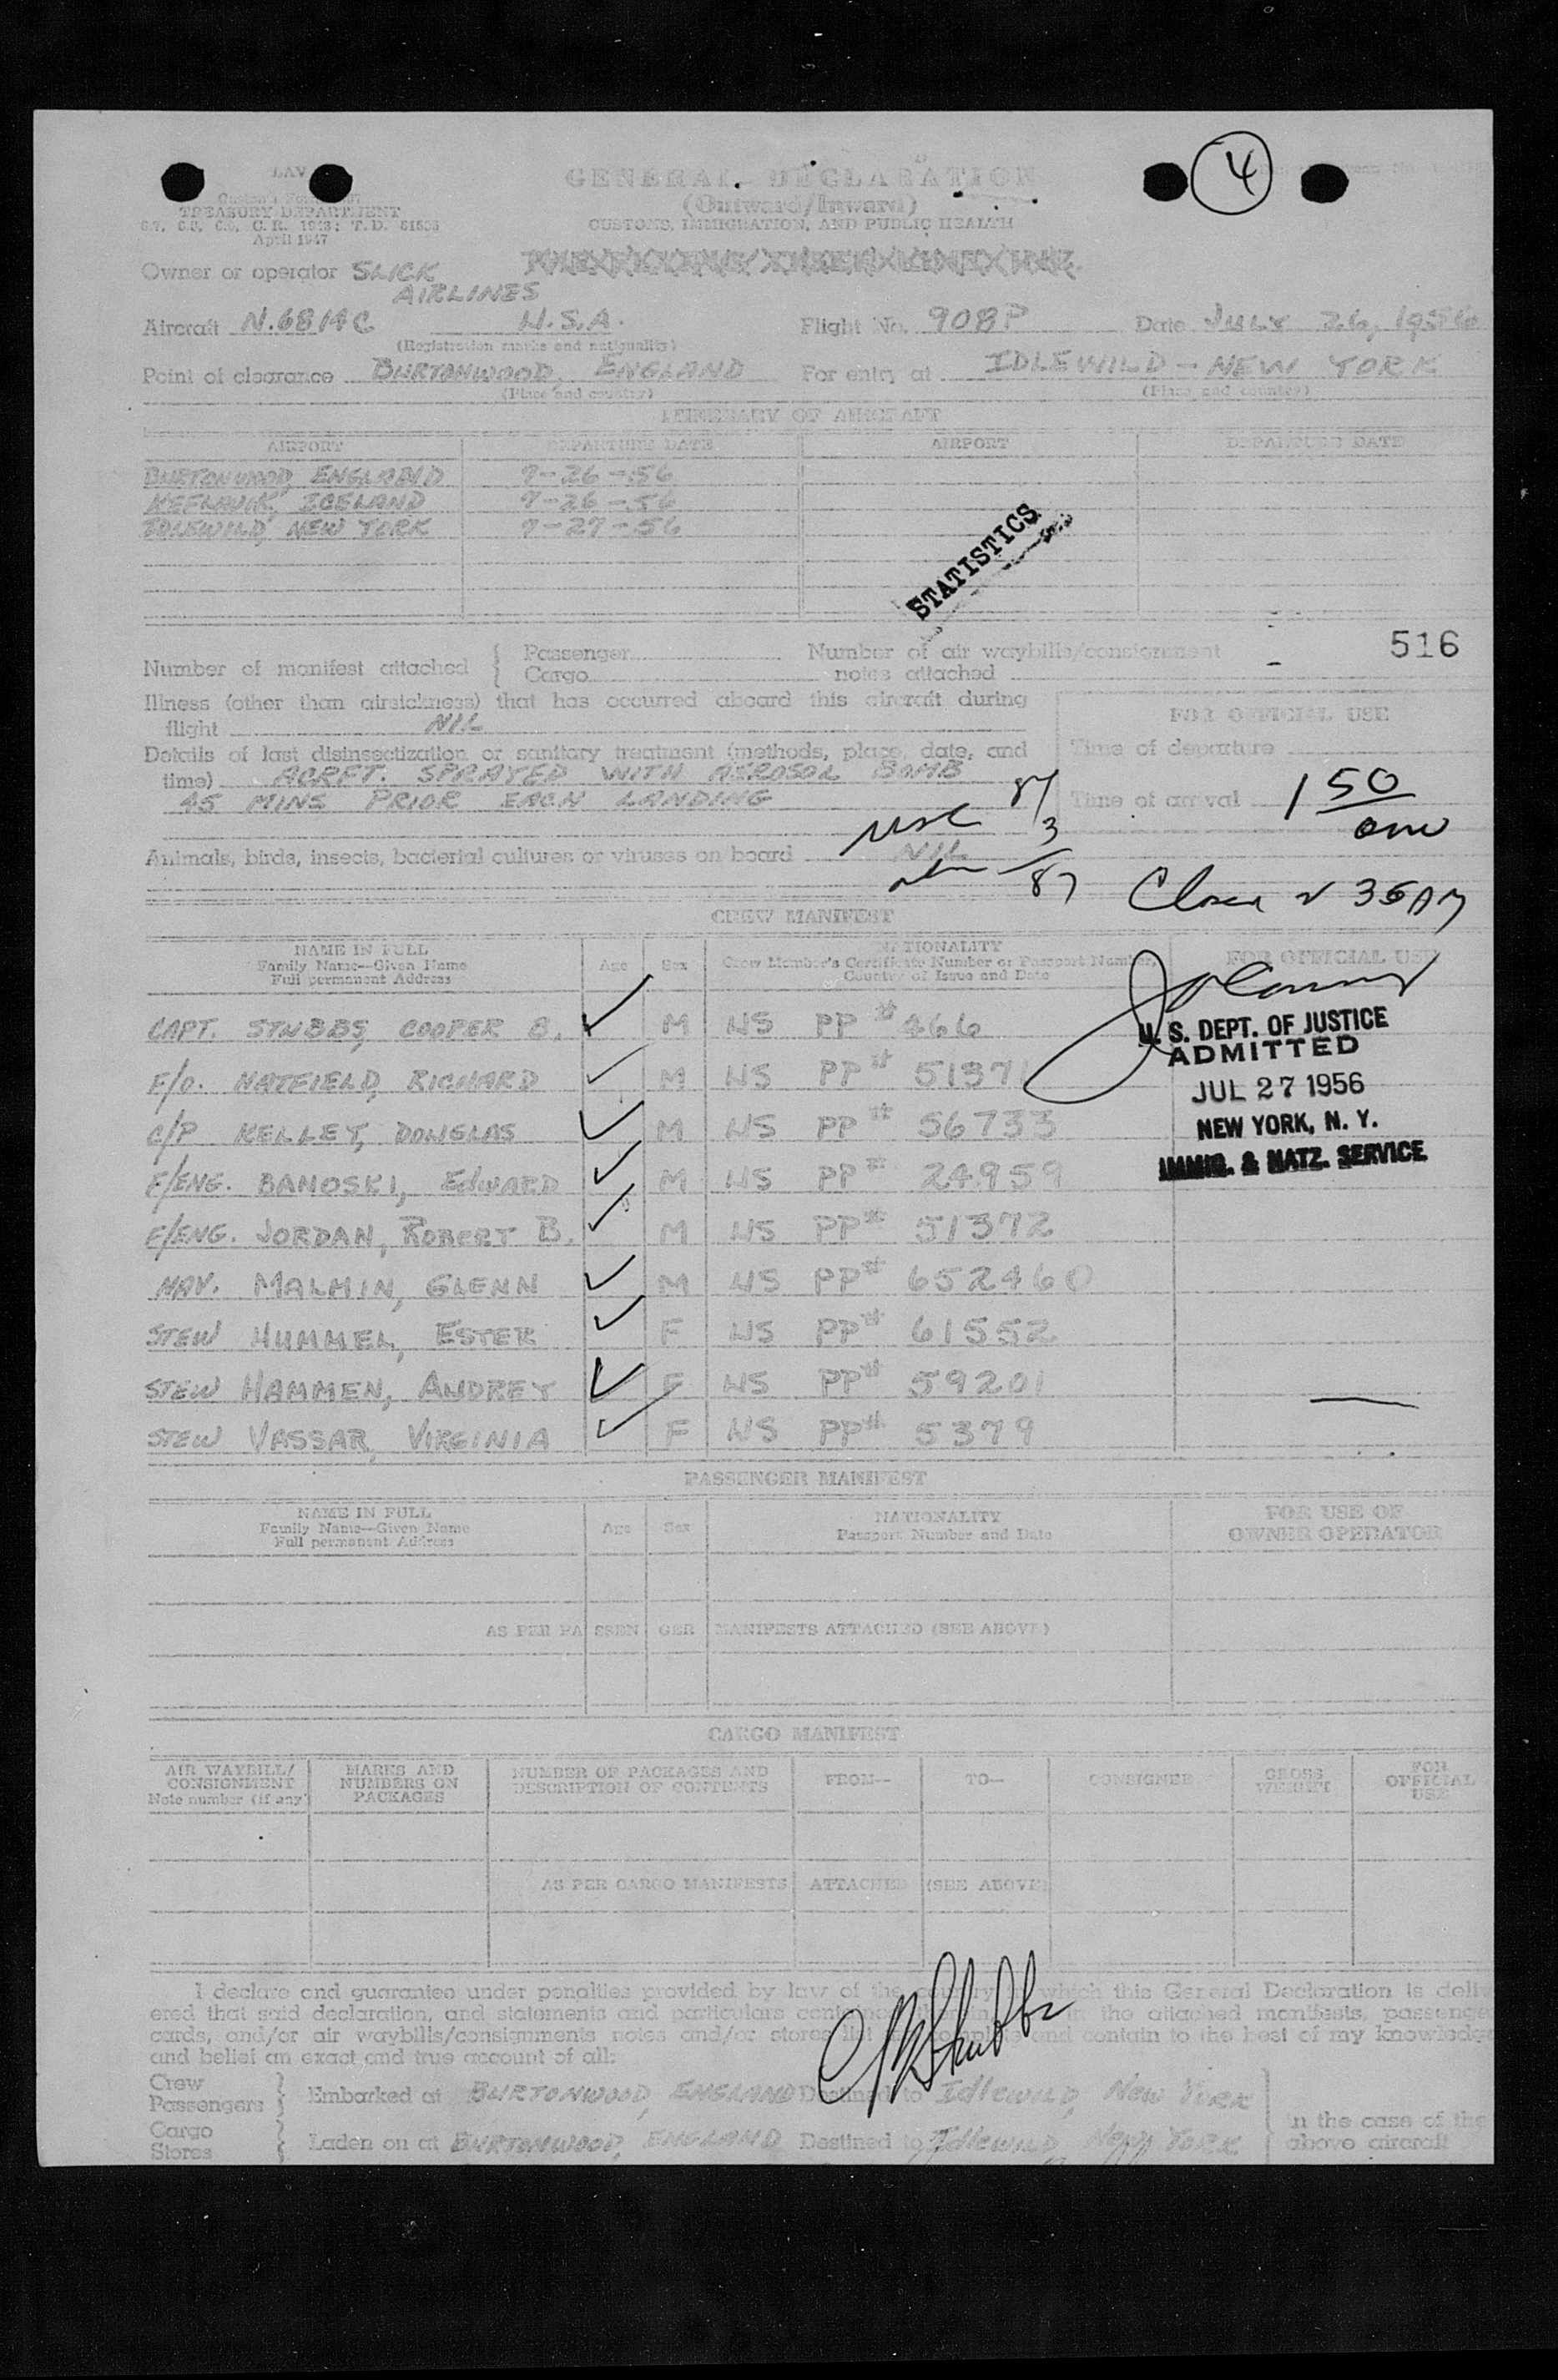 4
GENERAL DECLARATION
(Outward/Inward)
CUSTOMS, IMMIGRATION, AND PUBLIC HEALTH
TREASURY DEPARTMENT
April 1947
Owner or operator SLICK AIRLINES
Aircraft N.6814C U.S.A. Flight No. 908P Date JULY 26, 1956
(Registration marks and nationality)
Point of clearance BURTONWOOD, ENGLAND For entry at IDLEWILD - NEW YORK
(Place and country) (Place and country)
ITINERARY OF AIRCRAFT
AIRPORT DEPARTURE DATE AIRPORT DEPARTURE DATE
BURTONWOOD, ENGLAND 7-26-56
KEFLAVIK, ICELAND 7-26-56
IDLEWILD, NEW YORK 7-27-56
STATISTICS
516
Number of manifest attached { Passenger Number of air waybills/consignment
Cargo notes attached -
Illness (other than airsickness) that has occurred aboard this aircraft during
flight NIL
FOR OFFICIAL USE
Details of last disinsectization or sanitary treatment (methods, place, date, and
time) ACRFT. SPRAYED WITH AEROSOL BOMB
45 MINS PRIOR EACH LANDING
Time of departure
Time of arrival 1 50 am
usc 84
3
87
Animals, birds, insects, bacterial cultures or viruses on board NIL
35 AM
CREW MANIFEST
NAME IN FULL
Family Name—Given Name
Full permanent Address
Age Sex
NATIONALITY
Crew Member's Certificate Number or Passport Number,
Country of Issue and Date
FOR OFFICIAL USE
CAPT. STUBBS, COOPER B. M US PP # 466
F/O. HATFIELD, RICHARD M US PP # 51371
C/P KELLEY, DOUGLAS M US PP # 56733
F/ENG. BANOSKI, EDWARD M US PP # 24959
F/ENG. JORDAN, ROBERT B. M US PP # 51372
NAV. MALMIN, GLENN M US PP # 652460
STEW HUMMEL, ESTER F US PP # 61552
STEW HAMMEN, AUDREY F US PP # 59201
STEW VASSAR, VIRGINIA F US PP # 5379
U. S. DEPT. OF JUSTICE
ADMITTED
JUL 27 1956
NEW YORK, N. Y.
IMMIG. & NATZ. SERVICE
PASSENGER MANIFEST
NAME IN FULL
Family Name—Given Name
Full permanent Address
Age Sex
NATIONALITY
Passport Number and Date
FOR USE OF
OWNER OPERATOR
AS PER PASSENGER MANIFESTS ATTACHED (SEE ABOVE)
CARGO MANIFEST
AIR WAYBILL/
CONSIGNMENT
Note number (if any)
MARKS AND
NUMBERS ON
PACKAGES
NUMBER OF PACKAGES AND
DESCRIPTION OF CONTENTS
FROM—
TO—
CONSIGNEE
GROSS
WEIGHT
FOR
OFFICIAL
USE
AS PER CARGO MANIFESTS ATTACHED (SEE ABOVE)
I declare and guarantee under penalties provided by law of the country which this General Declaration is deliv
ered that said declaration, and statements and particulars the attached manifests, passenge
cards, and/or air waybills/consignments notes and/or stores list and contain to the best of my knowledge
and belief an exact and true account of all:
CB Stubbs
Crew
Passengers } Embarked at BURTONWOOD, ENGLAND Destined to IDLEWILD, NEW YORK
Cargo
Stores } Laden on at BURTONWOOD, ENGLAND Destined to IDLEWILD, NEW YORK
in the case of the
above aircraft